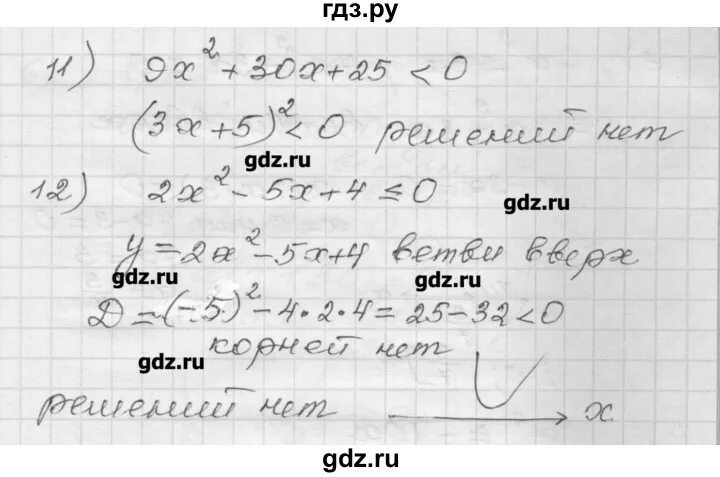 гдз.ру
11) 9x² + 30x + 25 < 0
(3x + 5)² < 0 решений нет
gdz.ru
12) 2x² - 5x + 4 ≤ 0
gdz.ru
y = 2x² - 5x + 4 ветви вверх
gdz.ru
gdz.ru
D = (-5)² - 4 · 2 · 4 = 25 - 32 < 0
gdz.ru
корней нет
решений нет
x
gdz.ru